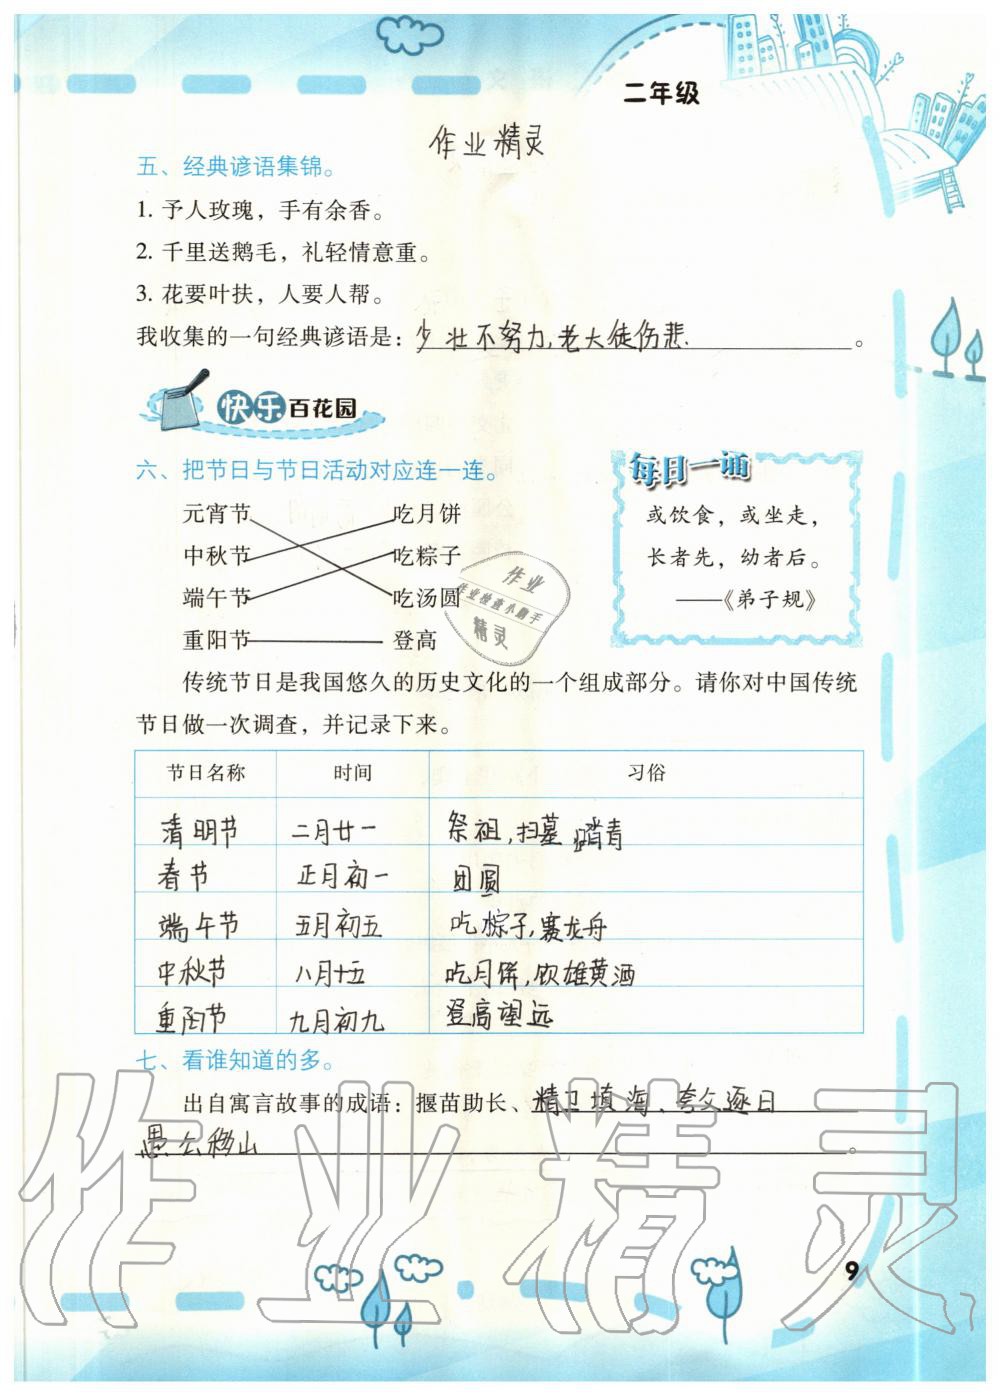 二年级
作业精灵
五、经典谚语集锦。
1. 予人玫瑰，手有余香。
2. 千里送鹅毛，礼轻情意重。
3. 花要叶扶，人要人帮。
我收集的一句经典谚语是：少壮不努力,老大徒伤悲.。
快乐百花园
六、把节日与节日活动对应连一连。
每日一诵
元宵节 吃月饼
中秋节 吃粽子
端午节 吃汤圆
重阳节 登高
或饮食，或坐走，
长者先，幼者后。
——《弟子规》
作业
作业检查小助手
精灵
传统节日是我国悠久的历史文化的一个组成部分。请你对中国传统
节日做一次调查，并记录下来。
节日名称 时间 习俗
清明节 二月廿一 祭祖,扫墓 踏青
春节 正月初一 团圆
端午节 五月初五 吃粽子,赛龙舟
中秋节 八月十五 吃月饼,饮雄黄酒
重阳节 九月初九 登高望远
七、看谁知道的多。
出自寓言故事的成语：揠苗助长、精卫填海、夸父逐日
愚公移山。
作业精灵
9